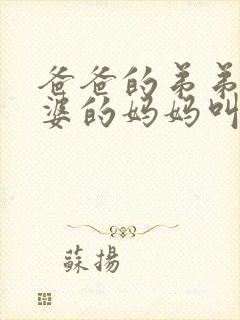 爸爸的弟弟
婆的妈妈叫
蘇揚